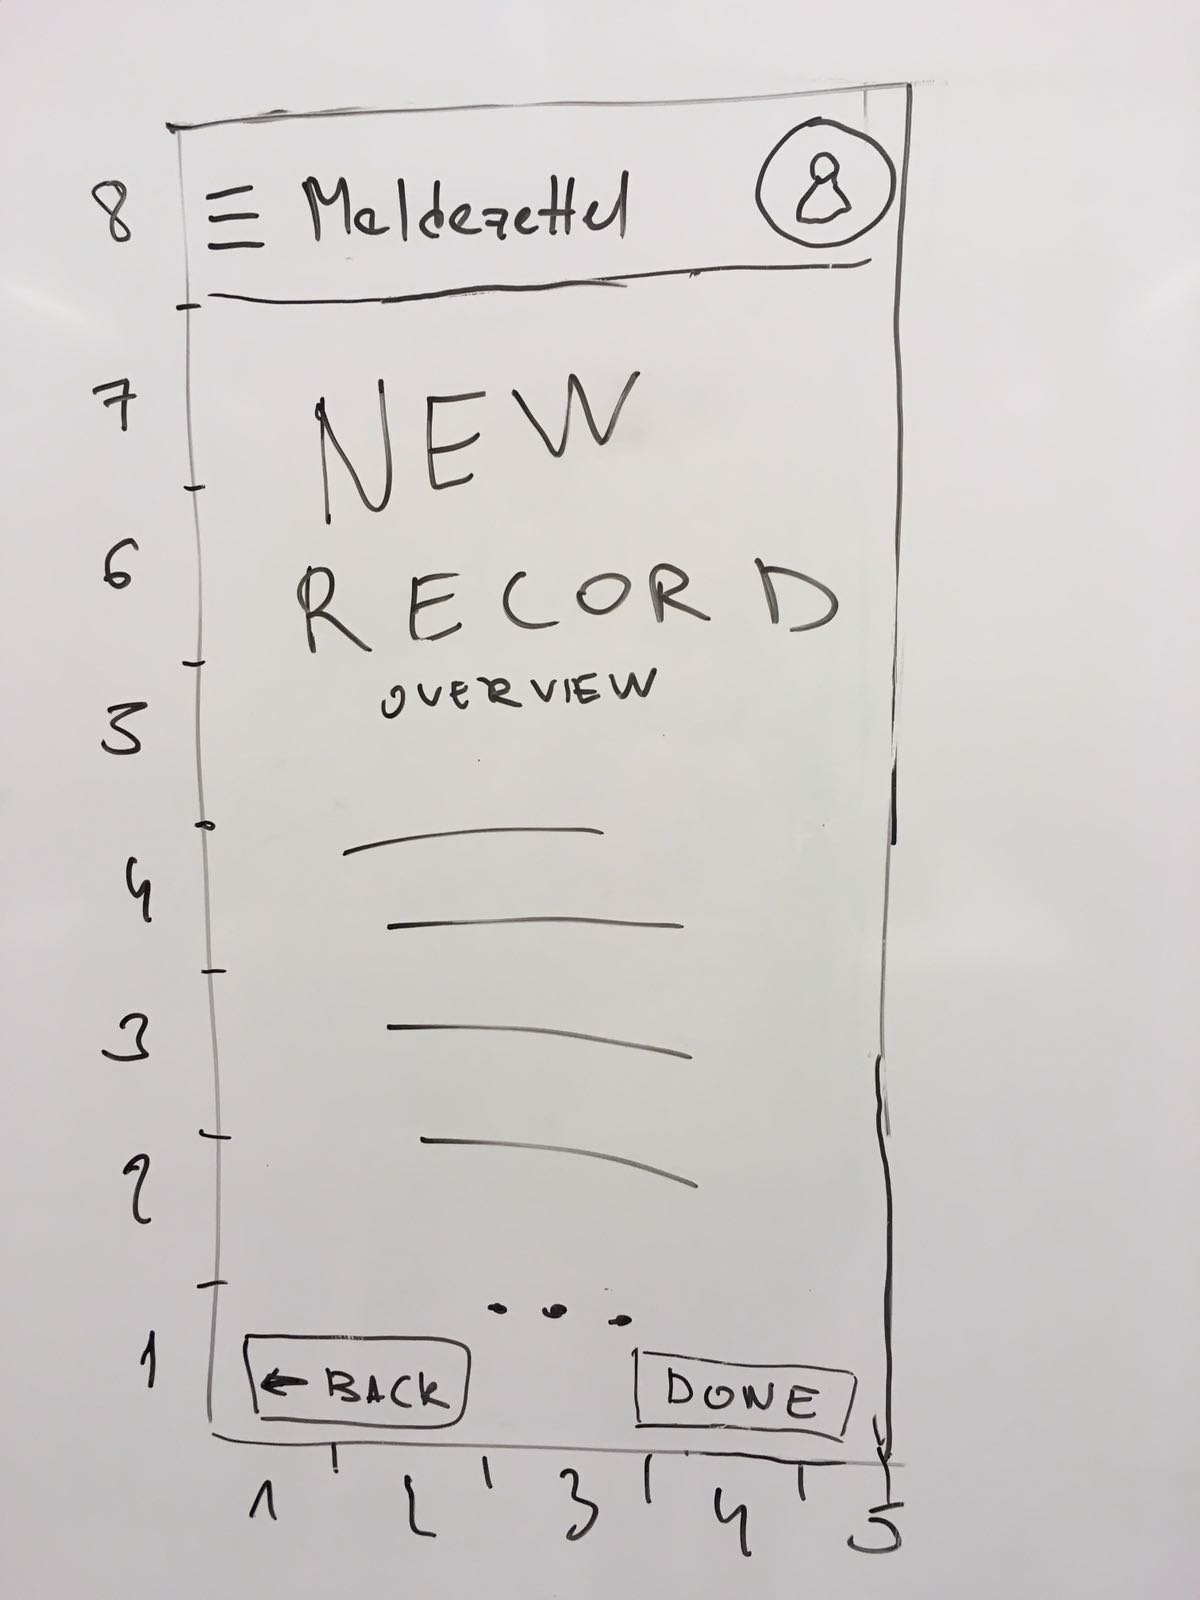 8
Meldezettel
7
NEW
6
RECORD
OVERVIEW
5
4
3
2
1
← BACK
DONE
1 2 3 4 5